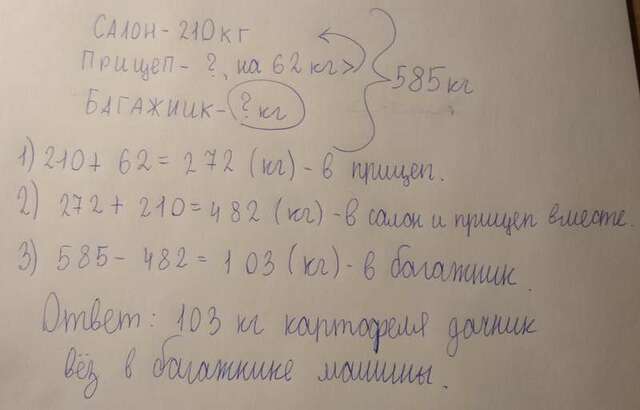 САЛОН - 210 кг
ПРИЦЕП - ?, на 62 кг >
БАГАЖНИК - ? кг
585 кг
1) 210 + 62 = 272 (кг) - в прицеп.
2) 272 + 210 = 482 (кг) - в салон и прицеп вместе.
3) 585 - 482 = 103 (кг) - в багажник.
Ответ: 103 кг картофеля дачник
вёз в багажнике машины.